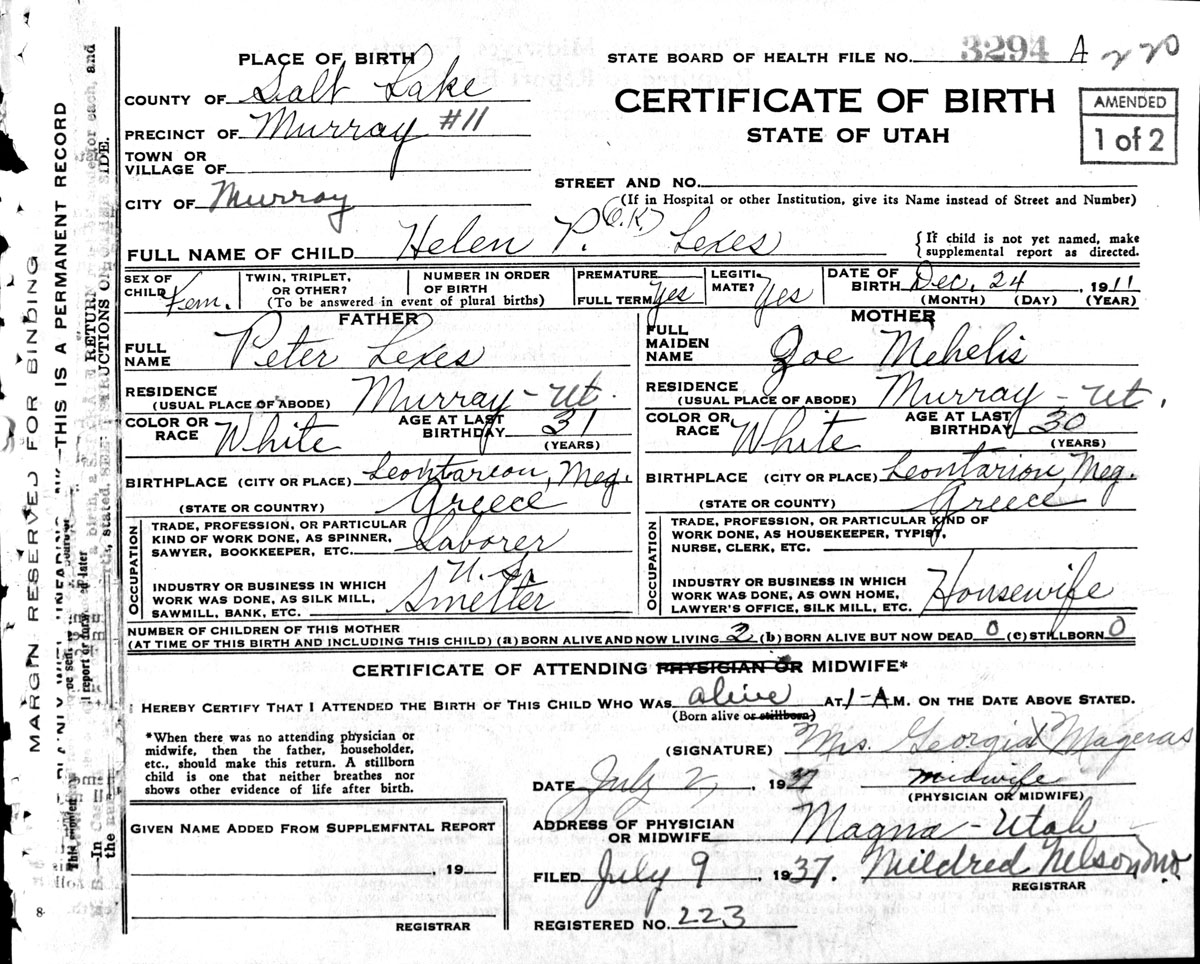 PLACE OF BIRTH
STATE BOARD OF HEALTH FILE NO. 3294 A 220
COUNTY OF Salt Lake
CERTIFICATE OF BIRTH
STATE OF UTAH
AMENDED
1 of 2
PRECINCT OF Murray #11
TOWN OR
VILLAGE OF
STREET AND NO.
(If in Hospital or other Institution, give its Name instead of Street and Number)
CITY OF Murray
FULL NAME OF CHILD Helen P. (O.K.) Lexes
{If child is not yet named, make
supplemental report as directed.
SEX OF
CHILD Fem.
TWIN, TRIPLET,
OR OTHER?
NUMBER IN ORDER
OF BIRTH
(To be answered in event of plural births)
PREMATURE
FULL TERM Yes
LEGITI-
MATE? Yes
DATE OF
BIRTH Dec. 24, 1911
(MONTH) (DAY) (YEAR)
FATHER
FULL
NAME Peter Lexes
RESIDENCE
(USUAL PLACE OF ABODE) Murray - Ut.
COLOR OR
RACE White
AGE AT LAST
BIRTHDAY 31
(YEARS)
BIRTHPLACE (CITY OR PLACE) Leontarion, Meg.
(STATE OR COUNTRY) Greece
OCCUPATION
TRADE, PROFESSION, OR PARTICULAR
KIND OF WORK DONE, AS SPINNER,
SAWYER, BOOKKEEPER, ETC. Laborer
INDUSTRY OR BUSINESS IN WHICH
WORK WAS DONE, AS SILK MILL,
SAWMILL, BANK, ETC. Smelter
MOTHER
FULL
MAIDEN
NAME Zoe Mehelis
RESIDENCE
(USUAL PLACE OF ABODE) Murray - Ut.
COLOR OR
RACE White
AGE AT LAST
BIRTHDAY 30
(YEARS)
BIRTHPLACE (CITY OR PLACE) Leontarion, Meg.
(STATE OR COUNTY) Greece
OCCUPATION
TRADE, PROFESSION, OR PARTICULAR KIND OF
WORK DONE, AS HOUSEKEEPER, TYPIST,
NURSE, CLERK, ETC.
INDUSTRY OR BUSINESS IN WHICH
WORK WAS DONE, AS OWN HOME,
LAWYER'S OFFICE, SILK MILL, ETC. Housewife
NUMBER OF CHILDREN OF THIS MOTHER
(AT TIME OF THIS BIRTH AND INCLUDING THIS CHILD) (a) BORN ALIVE AND NOW LIVING 2 (b) BORN ALIVE BUT NOW DEAD 0 (c) STILLBORN 0
CERTIFICATE OF ATTENDING PHYSICIAN OR MIDWIFE*
I HEREBY CERTIFY THAT I ATTENDED THE BIRTH OF THIS CHILD WHO WAS alive AT 1-A M. ON THE DATE ABOVE STATED.
(Born alive or stillborn)
*When there was no attending physician or
midwife, then the father, householder,
etc., should make this return. A stillborn
child is one that neither breathes nor
shows other evidence of life after birth.
(SIGNATURE) Mrs. Georgia Mageras
DATE July 2, 1937
midwife
(PHYSICIAN OR MIDWIFE)
GIVEN NAME ADDED FROM SUPPLEMENTAL REPORT
, 19
REGISTRAR
ADDRESS OF PHYSICIAN
OR MIDWIFE Magna - Utah
FILED July 9, 1937. Mildred Nelson M.D.
REGISTRAR
REGISTERED NO. 223
MARGIN RESERVED FOR BINDING
THIS IS A PERMANENT RECORD
8-